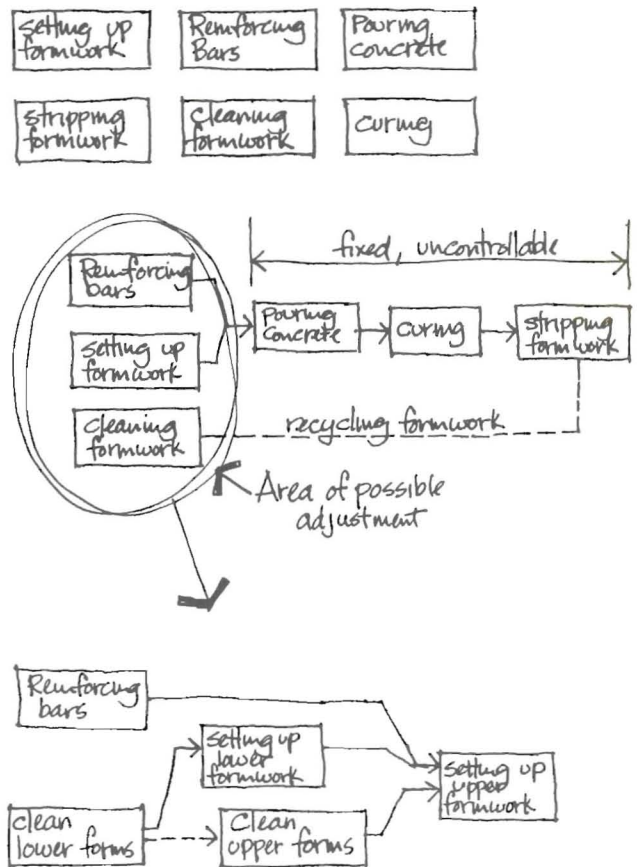 setting up
formwork
Reinforcing
Bars
Pouring
concrete
stripping
formwork
cleaning
formwork
curing
fixed, uncontrollable
Reinforcing
bars
setting up
formwork
cleaning
formwork
Pouring
Concrete
curing
stripping
formwork
recycling formwork
Area of possible
adjustment
Reinforcing
bars
setting up
lower
formwork
setting up
upper
formwork
clean
lower forms
Clean
upper forms